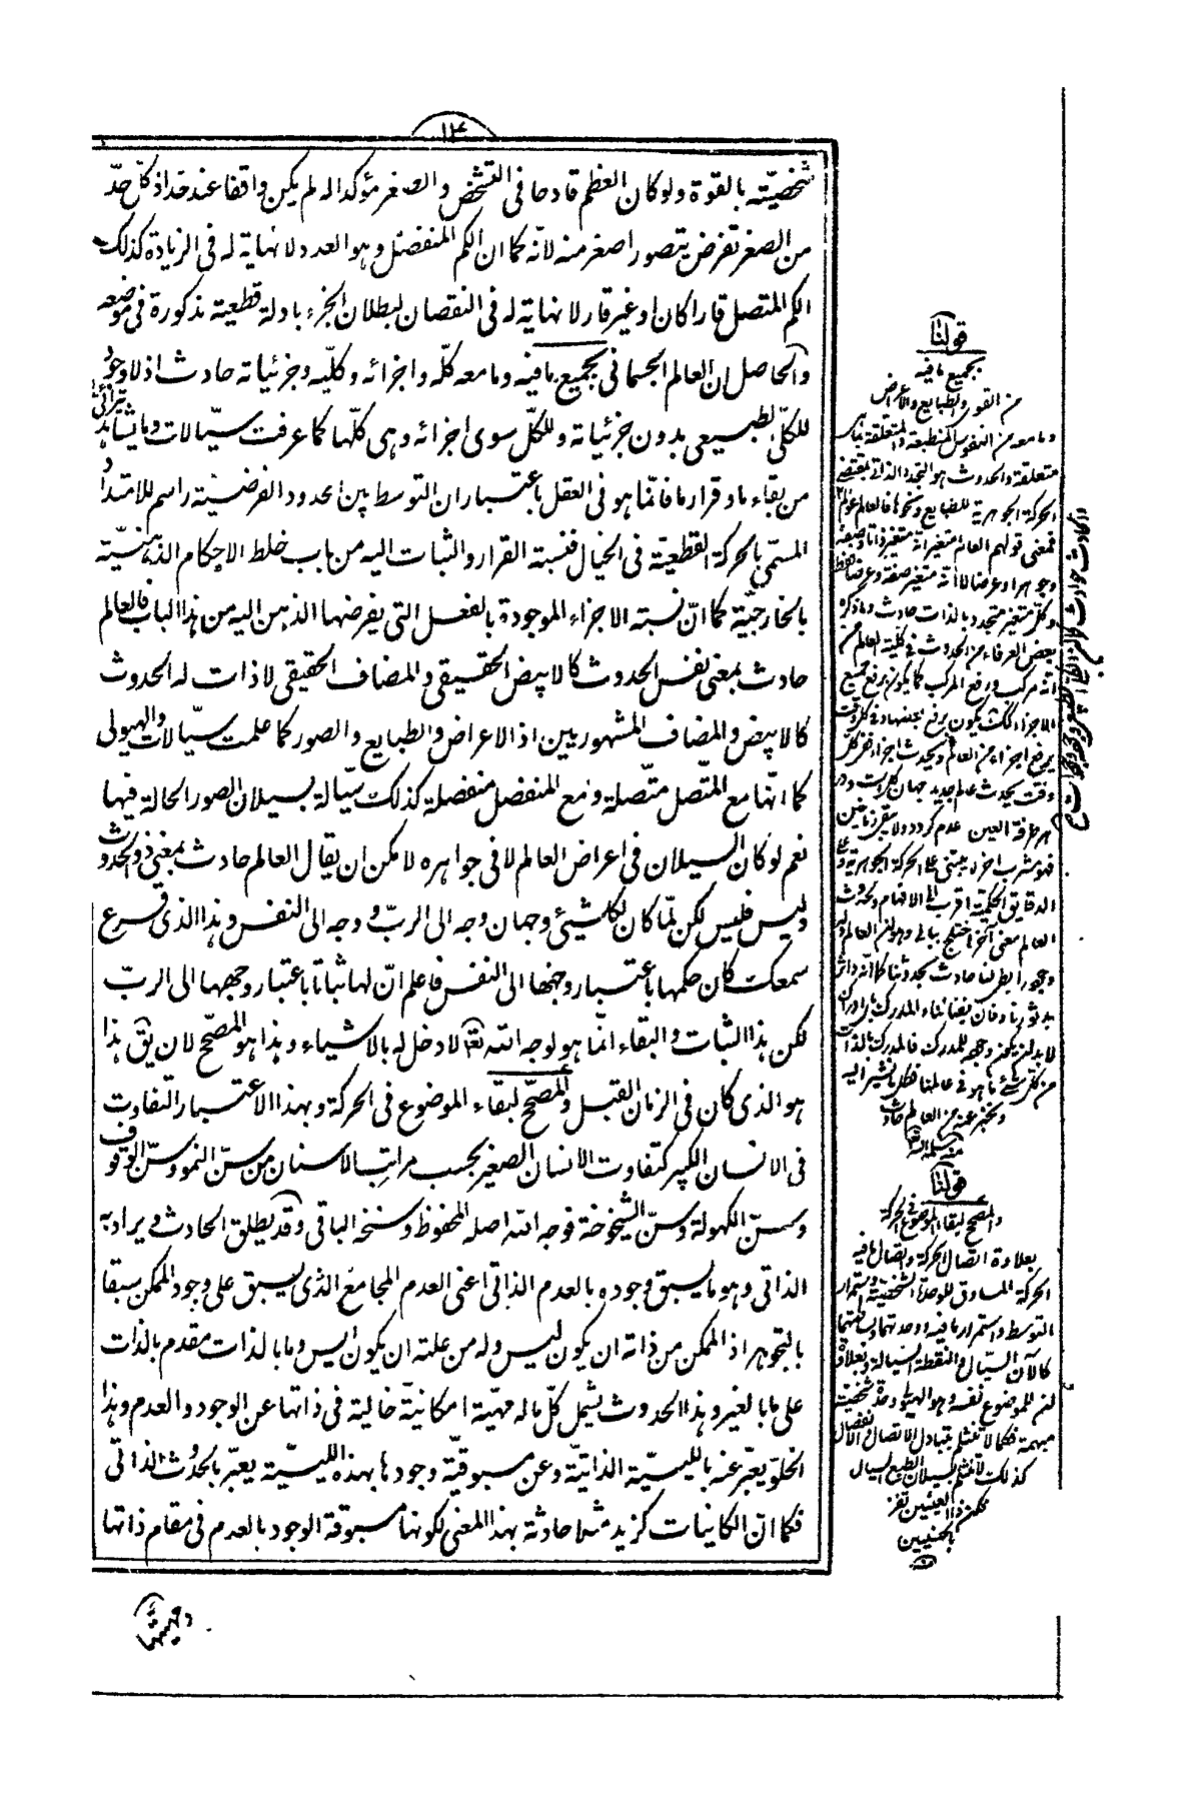 ١٣
شخصيّته بالقوة ولو كان العظم قادحا فى التشخص والصغر مؤكدا له لم يكن واقفا عند حد اذ كل حدّ
من الصغر تفرض يتصور اصغر منه لانّه كما ان الكم المنفصل وهو العدد لا نهاية له فى الزيادة كذلك
الكم المتصل قارا كان او غير قار لا نهاية له فى النقصان لبطلان الجزء بادلة قطعية مذكورة فى موضعه
والحاصل ان العالم الجسمانى بجميع ما فيه وما معه كلّه واجزائه وكلّيه وجزئياته حادث اذ لا وجود
للكلّى الطبيعى بدون جزئياته وللكلّ سوى اجزائه وهى كلّها كما عرفت سيّالات وما يشاهد
من بقاء ما وقرار ما فانّما هو فى العقل باعتبار ان التوسط بين الحدود الفرضيّة راسم للامتداد
المسمى بالحركة القطعية فى الخيال فنسبة القرار والثبات اليه من باب خلط الاحكام الذهنيّة
بالخارجيّة كما انّ نسبة الاجزاء الموجودة بالفعل التى يفرضها الذهن اليه من هذا الباب فالعالم
حادث بمعنى نفس الحدوث كالابيض الحقيقى والمضاف الحقيقى لا ذات له الحدوث
كالابيض والمضاف المشهوريين اذ الاعراض والطبايع والصور كما علمت سيّالات والهيولى
كما انّها مع المتّصل متّصلة ومع المنفصل منفصلة كذلك سيّالة بسيلان الصور الحالة فيها
نعم لو كان السيلان فى اعراض العالم لا فى جواهره لامكن ان يقال العالم حادث بمعنى ذو الحدوث
وليس فليس لكن لمّا كان لكلشيئ وجهان وجه الى الربّ ووجه الى النفس وهذا الذى قرع
سمعك كان حكمها باعتبار وجهها الى النفس فاعلم انّ لها ثباتا باعتبار وجهها الى الربّ
لكن هذا الثبات والبقاء انّما هو لوجه الله تعا لا دخل له بالاشياء وهذا هو المصحّح لان يق هذا
هو الذى كان فى الزمان القبل والمصحّح لبقاء الموضوع فى الحركة وبهذا الاعتبار التفاوت
فى الانسان الكبير كتفاوت الانسان الصغير بحسب مراتب الاسنان من سنّ النمو وسنّ الوقوف
وسنّ الكهولة وسنّ الشيخوخة فوجه الله اصله المحفوظ وسنخه الباقى وقد يطلق الحادث ويراد به
الذاتى وهو ما يسبق وجوده بالعدم الذاتى اعنى العدم المجامع الذى يسبق على وجود الممكن سبقا
بالتجوهر اذ الممكن من ذاته ان يكون ليس وله من علته ان يكون ايس وما بالذات مقدم بالذات
على ما بالغير وهذا الحدوث يشمل كلّ ماله مهيّة امكانيّة خالية فى ذاتها عن الوجود والعدم وهذا
الخلوّ يعبّر عنه بالليسيّة الذاتيّة وعن مسبوقيّة وجودها بهذه الليسيّة يعبّر بالحدوث الذاتى
فكما انّ الكاينات كزيد مثلا حادثة بهذا المعنى لكونها مسبوقة الوجود بالعدم فى مقام ذاتها
قولنا
بجميع ما فيه
من القوى والطبايع والاعراض
وما معه من النفوس المنطبعة والمتعلقة
متعلقة والحدوث هو التجدد الذاتى بمقتضى
الحركة الجوهرية للطبايع ونحوها فالعالم
فمعنى قولهم العالم متغير انه متغير ذاتا وصفة
وجوهرا وعرضا لا انه متغير صفة وعرضا فقط
وكل متغير متجدد بالذات حادث وما ذكره
بعض العرفاء من الحدوث فى كلية العالم من
انه مركب ورفع المركب كما يكون برفع جميع
الاجزاء كذلك يكون برفع بعضها وفى كل وقت
يرفع اجزاء من العالم ويحدث اجزاء ففى كل
وقت يحدث عالم جديد جهان كل است ودر
هر طرفة العين عدم گردد ولا يبقى زمانين
فهو مشرب اخر مبتنى على الحركة الجوهرية
الدقايق الحكمية اقرب الى الافهام ولحدوث
العالم معنى آخر اختلج ببالى وهو ان العالم
لا بد ان يكون وجهه للمدرك فالمدرك بالذات
من كل شئ ما هو فى عالمنا فكل ما نشير اليه
ونخبر عنه من العالم حادث
منه سلمه الله
قولنا
والمصحح لبقاء الموضوع فى الحركة
بعلاوة اتصال الحركة واتصال ما فيه
الحركة المساوق للوحدة الشخصية واستمرار
التوسط واستمرار ما فيه ووحدتهما وبساطتهما
كالآن السيّال والنقطة السيالة وبعلاوة
ان للموضوع نفسه وهو الهيولى وحدة شخصية
مبهمة فكما لا تنثلم بتبادل الاتصال والانفصال
كذلك لا تنثلم بسيلان الطبع السيال